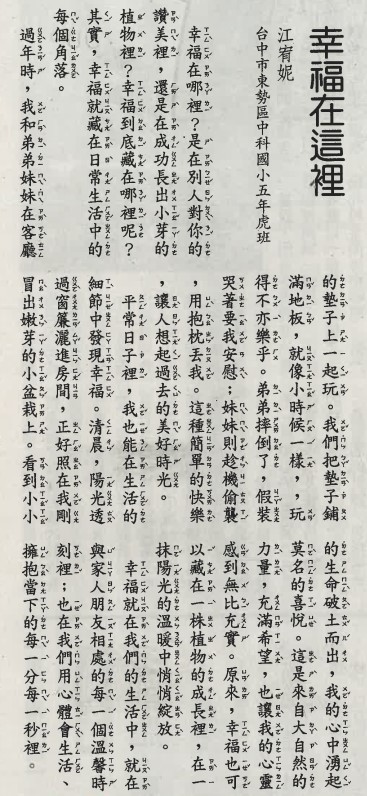 幸福在這裡
江宥妮
台中市東勢區中科國小五年虎班
幸福在哪裡？是在別人對你的
讚美裡，還是在成功長出小芽的
植物裡？幸福到底藏在哪裡呢？
其實，幸福就藏在日常生活中的
每個角落。
過年時，我和弟弟妹妹在客廳
的墊子上一起玩。我們把墊子鋪
滿地板，就像小時候一樣，，玩
得不亦樂乎。弟弟摔倒了，假裝
哭著要我安慰；妹妹則趁機偷襲
，用抱枕丟我。這種簡單的快樂
，讓人想起過去的美好時光。
平常日子裡，我也能在生活的
細節中發現幸福。清晨，陽光透
過窗簾灑進房間，正好照在我剛
冒出嫩芽的小盆栽上。看到小小
的生命破土而出，我的心中湧起
莫名的喜悅。這是來自大自然的
力量，充滿希望，也讓我的心靈
感到無比充實。原來，幸福也可
以藏在一株植物的成長裡，在一
抹陽光的溫暖中悄悄綻放。
幸福就在我們的生活中，就在
與家人朋友相處的每一個溫馨時
刻裡；也在我們用心體會生活、
擁抱當下的每一分每一秒裡。